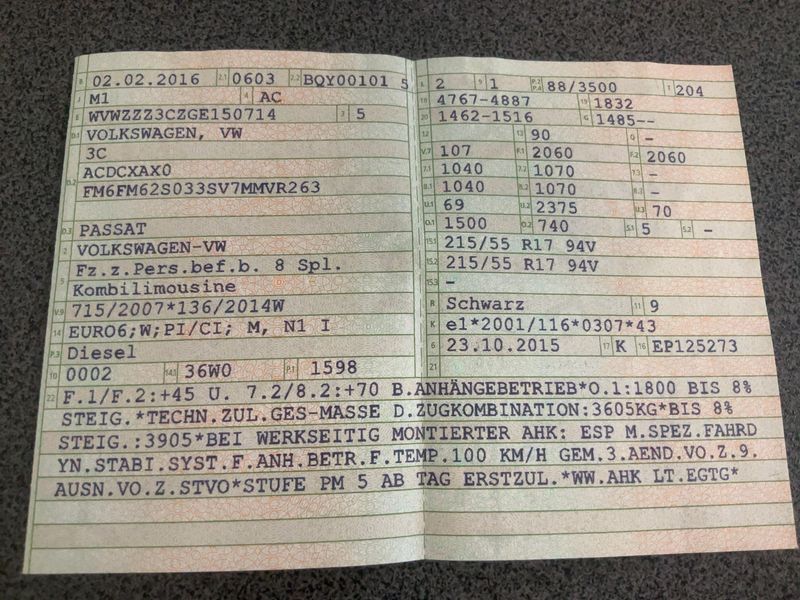 B 02.02.2016 2.1 0603 2.2 BQY00101 5
J M1 4 AC
E WVWZZZ3CZGE150714 3 5
D.1 VOLKSWAGEN, VW
3C
D.2 ACDCXAX0
FM6FM62S033SV7MMVR263
D.3 PASSAT
2 VOLKSWAGEN-VW
5 Fz.z.Pers.bef.b. 8 Spl.
Kombilimousine
V.9 715/2007*136/2014W
14 EURO6;W;PI/CI; M, N1 I
P.3 Diesel
10 0002 14.1 36W0 P.1 1598
L 2 9 1 P.2 P.4 88/3500 T 204
18 4767-4887 19 1832
20 1462-1516 G 1485--
12 13 90 Q -
V.7 107 F.1 2060 F.2 2060
7.1 1040 7.2 1070 7.3 -
8.1 1040 8.2 1070 8.3 -
U.1 69 U.2 2375 U.3 70
O.1 1500 O.2 740 S.1 5 S.2 -
15.1 215/55 R17 94V
15.2 215/55 R17 94V
15.3 -
R Schwarz 11 9
K e1*2001/116*0307*43
6 23.10.2015 17 K 16 EP125273
21
22 F.1/F.2:+45 U. 7.2/8.2:+70 B.ANHÄNGEBETRIEB*O.1:1800 BIS 8%
STEIG.*TECHN.ZUL.GES-MASSE D.ZUGKOMBINATION:3605KG*BIS 8%
STEIG.:3905*BEI WERKSEITIG MONTIERTER AHK: ESP M.SPEZ.FAHRD
YN.STABI.SYST.F.ANH.BETR.F.TEMP.100 KM/H GEM.3.AEND.VO.Z.9.
AUSN.VO.Z.STVO*STUFE PM 5 AB TAG ERSTZUL.*WW.AHK LT.EGTG*